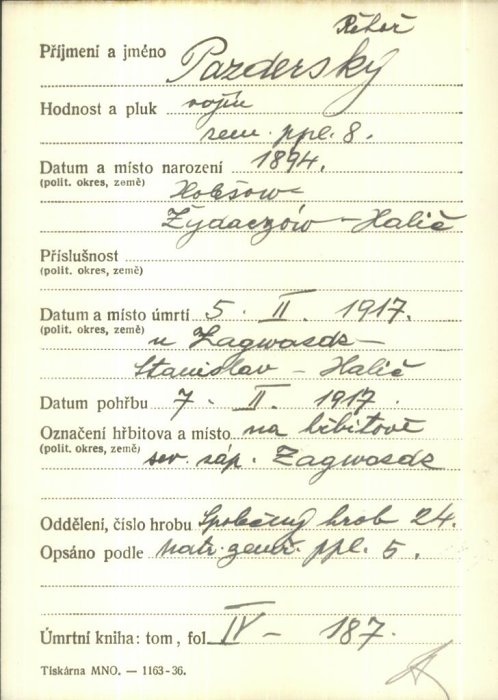 Řehoř
Příjmení a jméno Pazderský
Hodnost a pluk vojín
zem. ppl. 8.
Datum a místo narození 1894.
(polit. okres, země) Holešow -
Żydaczów - Halič
Příslušnost
(polit. okres, země)
Datum a místo úmrtí 5. II. 1917.
(polit. okres, země) u Zagwozdz -
Stanislav - Halič
Datum pohřbu 7. II. 1917.
Označení hřbitova a místo na hřbitově
(polit. okres, země) sev. záp. Zagwozdz
Oddělení, číslo hrobu Společný hrob 24.
Opsáno podle matr. zemř. ppl. 5.
Úmrtní kniha: tom, fol. IV - 187.
Tiskárna MNO. — 1163-36.